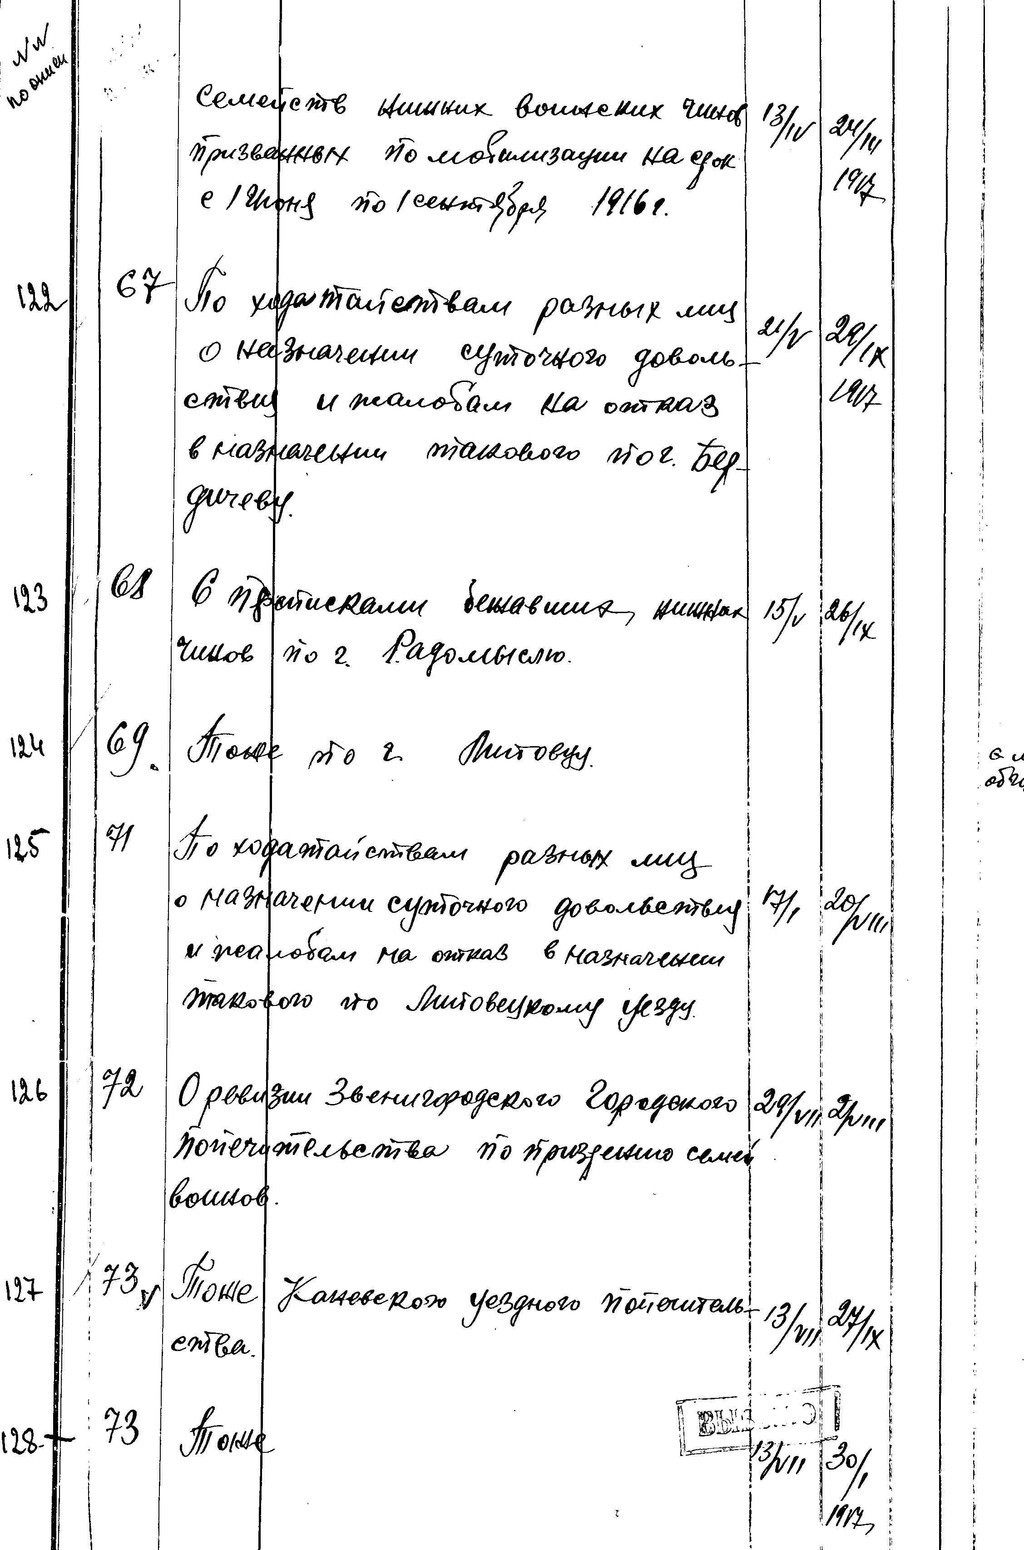 NN
по описи
семейств нижних воинских чинов 13/IV 24/III
призванных по мобилизации на срок
1917
с 1 Июня по 1 сентября 1916 г.
122 67 По ходатайствам разных лиц
о назначении суточного доволь- 21/V 29/IX
ствия и жалобам на отказ 1917
в назначении такового по г. Бер-
дичеву.
123 68 С прописками бежавших, нижних 15/V 26/IX
чинов по г. Радомыслю.
124 69. Тоже по г. Липовцу.
125 71 По ходатайствам разных лиц
о назначении суточного довольствия 17/I 20/VIII
и жалобам на отказ в назначении
такового по Липовецкому уезду.
126 72 О ревизии Звенигородского Городского 29/VII 2/VIII
попечительства по призрению семей
воинов.
127 73 v Тоже Каневского уездного попечитель- 13/VII 27/IX
ства.
128 73 Тоже
13/VII 30/I
1917